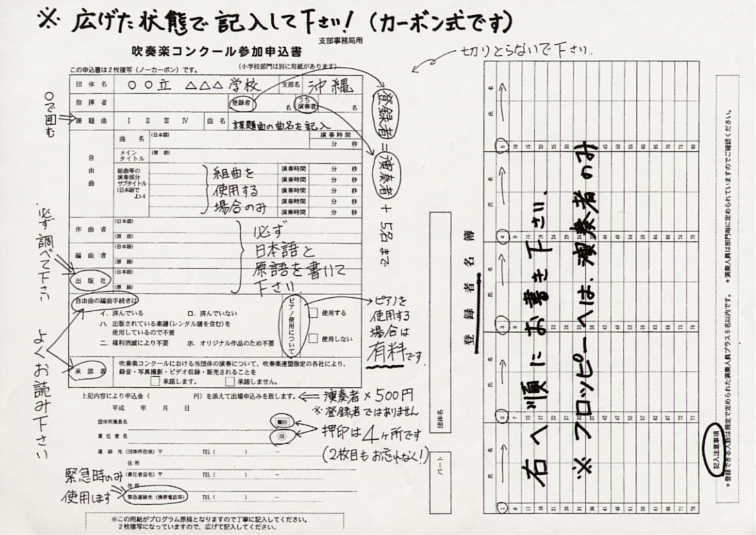 ※ 広げた状態で記入して下さい!(カーボン式です)
支部事務局用
吹奏楽コンクール参加申込書
切りとらないで下さい.
この申込書は2枚複写(ノーカーボン)です。
(小学校部門は別に用紙があります)
団体名 ○○立 △△△学校 支部名 沖縄
指揮者 登録者 名 演奏者 名
○で囲む
課題曲 Ⅰ Ⅱ Ⅲ Ⅳ 曲名 課題曲の曲名を記入
登録者=演奏者+5名まで
自由曲
曲名 (日本語) 演奏時間
分 秒
メインタイトル (原語)
組曲等の演奏部分サブタイトル(日本語でよい)
演奏時間 分 秒
演奏時間 分 秒
演奏時間 分 秒
演奏時間 分 秒
組曲を
使用する
場合のみ
作曲者 (日本語)
(原語)
編曲者 (日本語)
(原語)
出版社 (日本語)
(原語)
必ず
日本語と
原語を書いて
下さい
必ず調べて下さい
自由曲の編曲手続きは
イ. 済んでいる ロ. 済んでいない
ハ. 出版されている楽譜(レンタル譜を含む)を
使用しているので不要
ニ. 権利消滅により不要 ホ. オリジナル作品のため不要
ピアノ使用について
使用する
使用しない
ピアノを
使用する
場合は
有料です
よくお読み下さい
承諾書
吹奏楽コンクールにおける当団体の演奏について、吹奏楽連盟指定の各社により、
録音・写真撮影・ビデオ収録・販売されることを
承諾します。 承諾しません。
上記内容により申込金( 円)を添えて出場申込みを致します。
演奏者×500円
※登録者ではありません
平成 年 月 日
団体所属長名
責任者名
押印は4ヶ所です
(2枚目もお忘れなく!)
連絡先(団体所在地)〒 TEL( ) -
住所
(責任者自宅)〒 TEL( ) -
住所
緊急連絡先(携帯電話等) TEL( ) -
緊急時のみ
使用します
※この用紙がプログラム原稿となりますので丁寧に記入してください。
2枚複写になっていますので、広げて記入してください。
団体名
パート
登録者名簿
右へ順にお書き下さい.
※フロッピーへは、演奏者のみ
記入注意事項
*登録できる人数は規定で定められた演奏人員プラス5名以内です。 *演奏人員は部門毎に定められていますのでご確認ください。